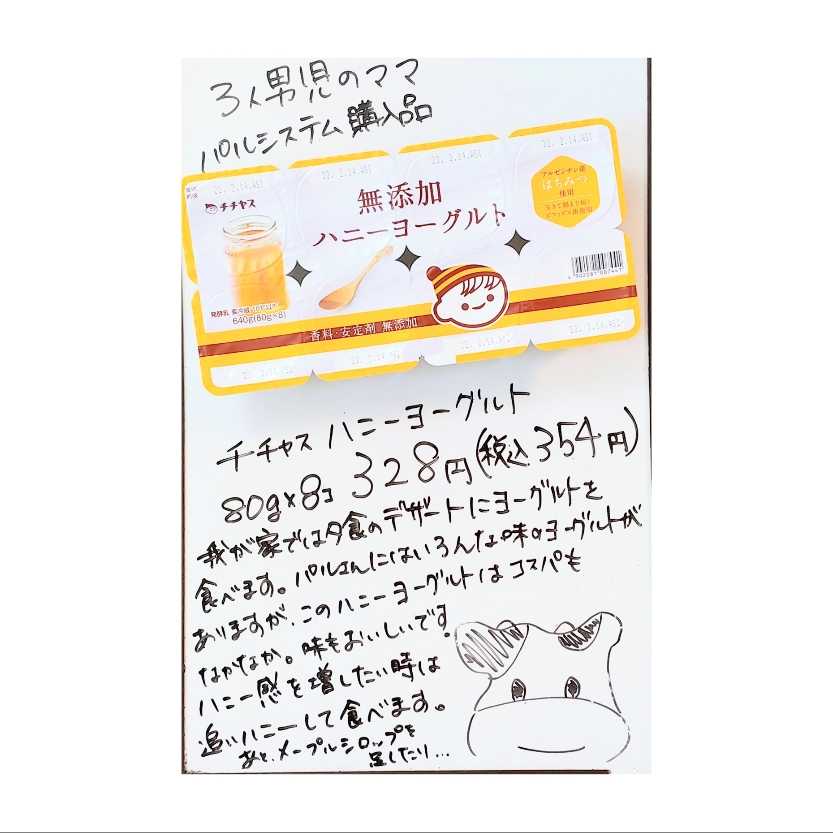 3人男児のママ
パルシステム購入品
チチヤス
無添加
ハニーヨーグルト
アルゼンチン産
はちみつ
使用
640g(80g×8)
香料・安定剤 無添加
チチヤス ハニーヨーグルト
80g×8コ 328円(税込354円)
我が家では夕食のデザートにヨーグルトを
食べます。パルさんにはいろんな味のヨーグルトが
ありますが、このハニーヨーグルトはコスパも
なかなか。味もおいしいです。
ハニー感を増したい時は
追いハニーして食べます。
あと、メープルシロップを
足したり…